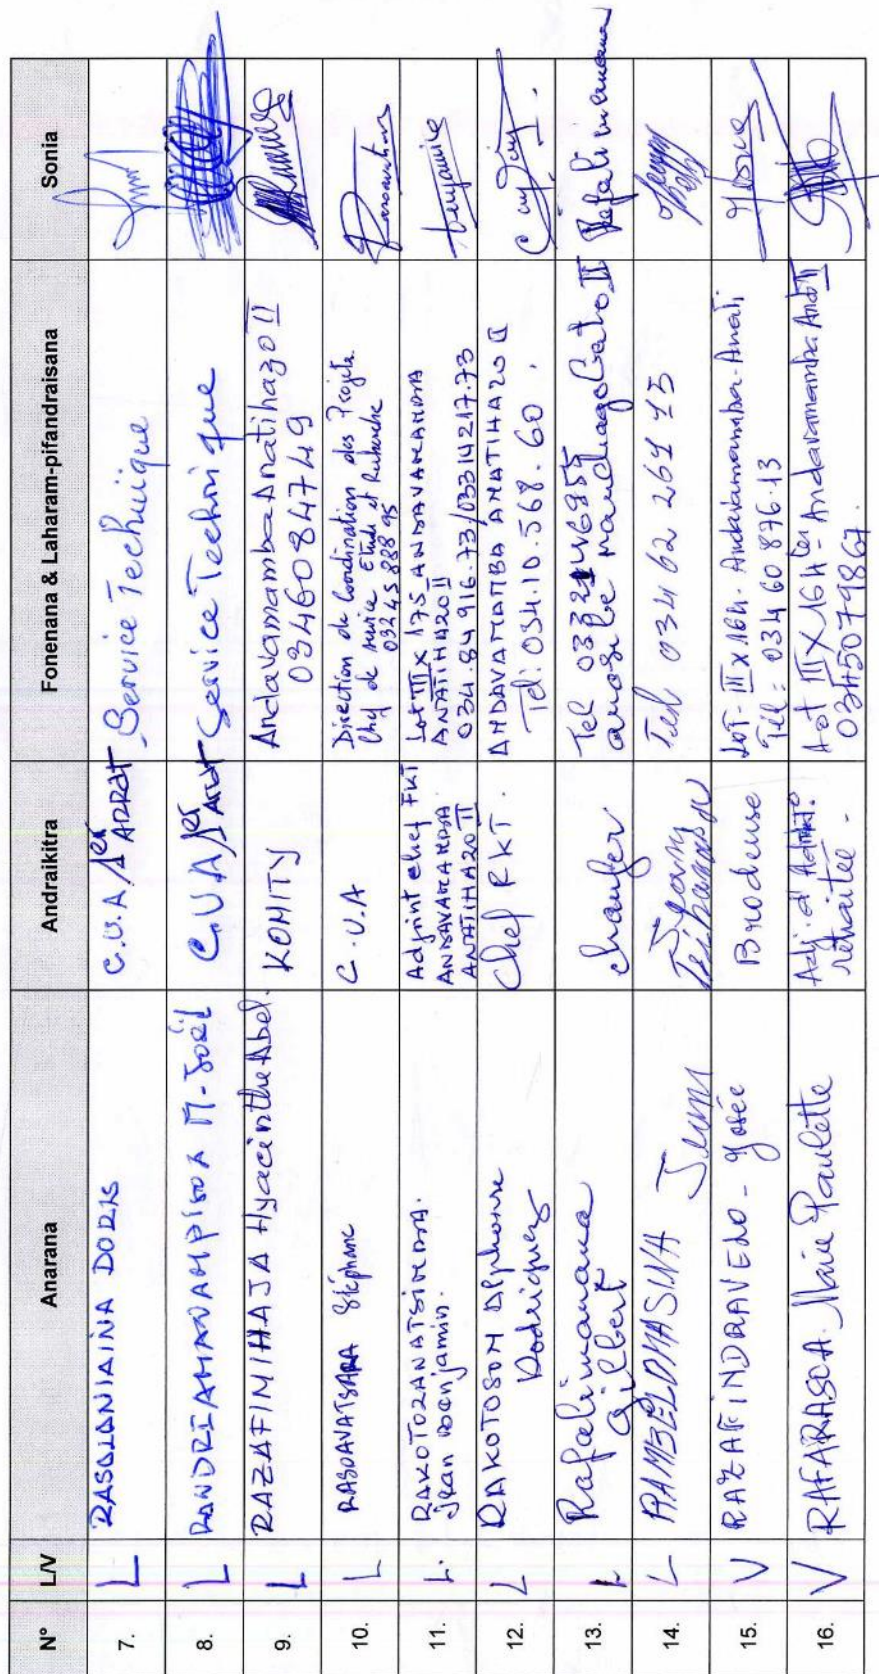 N° L/V Anarana Andraikitra Fonenana & Laharam-pifandraisana Sonia
7. L RASOLONIAINA DORIS C.U.A/1er ARRdT Service Technique
8. L M-Joël C.U.A/1er Arrdt Service Technique
9. L RAZAFIMIHAJA Hyacinthe Abel. KOMITY Andavamamba Anatihazo II
0346084749
10. L RASOAVATSARA Stéphane C.U.A Direction de Coordination des Projets
Chef de service Etude et Recherche
032 45 888 95
11. L.
Jean Benjamin.
Adjoint chef FKT
ANDAVAMAMBA
ANATIHAZO II
Lot III X 175 ANDAVAMAMBA
ANATIHAZO II
034.84 916.73/0331421773
12. L RAKOTOSON Alphonse
Rodriguez
Chef FKT.
ANDAVAMAMBA ANATIHAZO II
Tel: 034.10.568.60.
13. L Rafalimanana
Gilbert
chaufer
Tel
anosibe II
Rafalimanana
14. L Tel 034 62 261 15
15. V RAZAFINDRAVELO - Josée Brodeuse
LOT- III X 16H- Andavamamba-Anati
Tél: 034 60 876.13
16. V RAFARASOA Marie Paulette
Adj. d'
retraitée -
Lot III X 16H ter - Andavamamba Anat II
0345079867